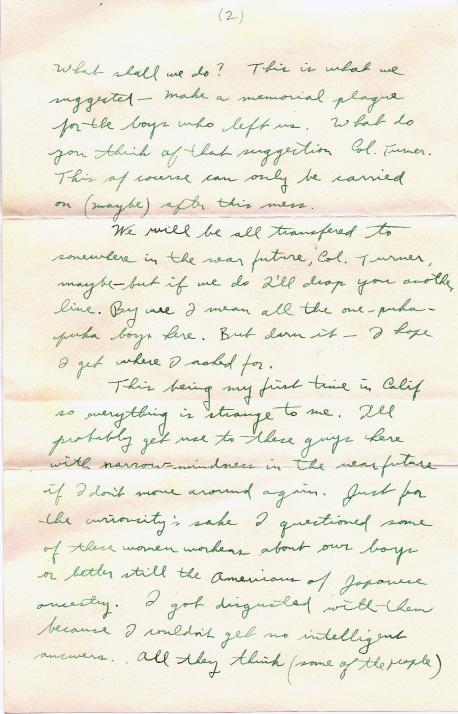 (2)
What shall we do? This is what we
suggested – make a memorial plaque
for the boys who left us. What do
you think of that suggestion Col. Turner.
This of course can only be carried
on (maybe) after this mess.
We will be all transfered to
somewhere in the near future, Col. Turner,
maybe – but if we do I'll drop you another
line. By we I mean all the one-puka-
puka boys here. But darn it – I hope
I get where I asked for.
This being my first time in Calif
so everything is strange to me. I'll
probably get use to these guys here
with narrow-mindness in the near future
if I don't move around again. Just for
the curiosity's sake I questioned some
of these women workers about our boys
or better still the Americans of Japanese
ancestry. I got disgusted with them
because I couldn't get no intelligent
answers. All they think (some of the people)